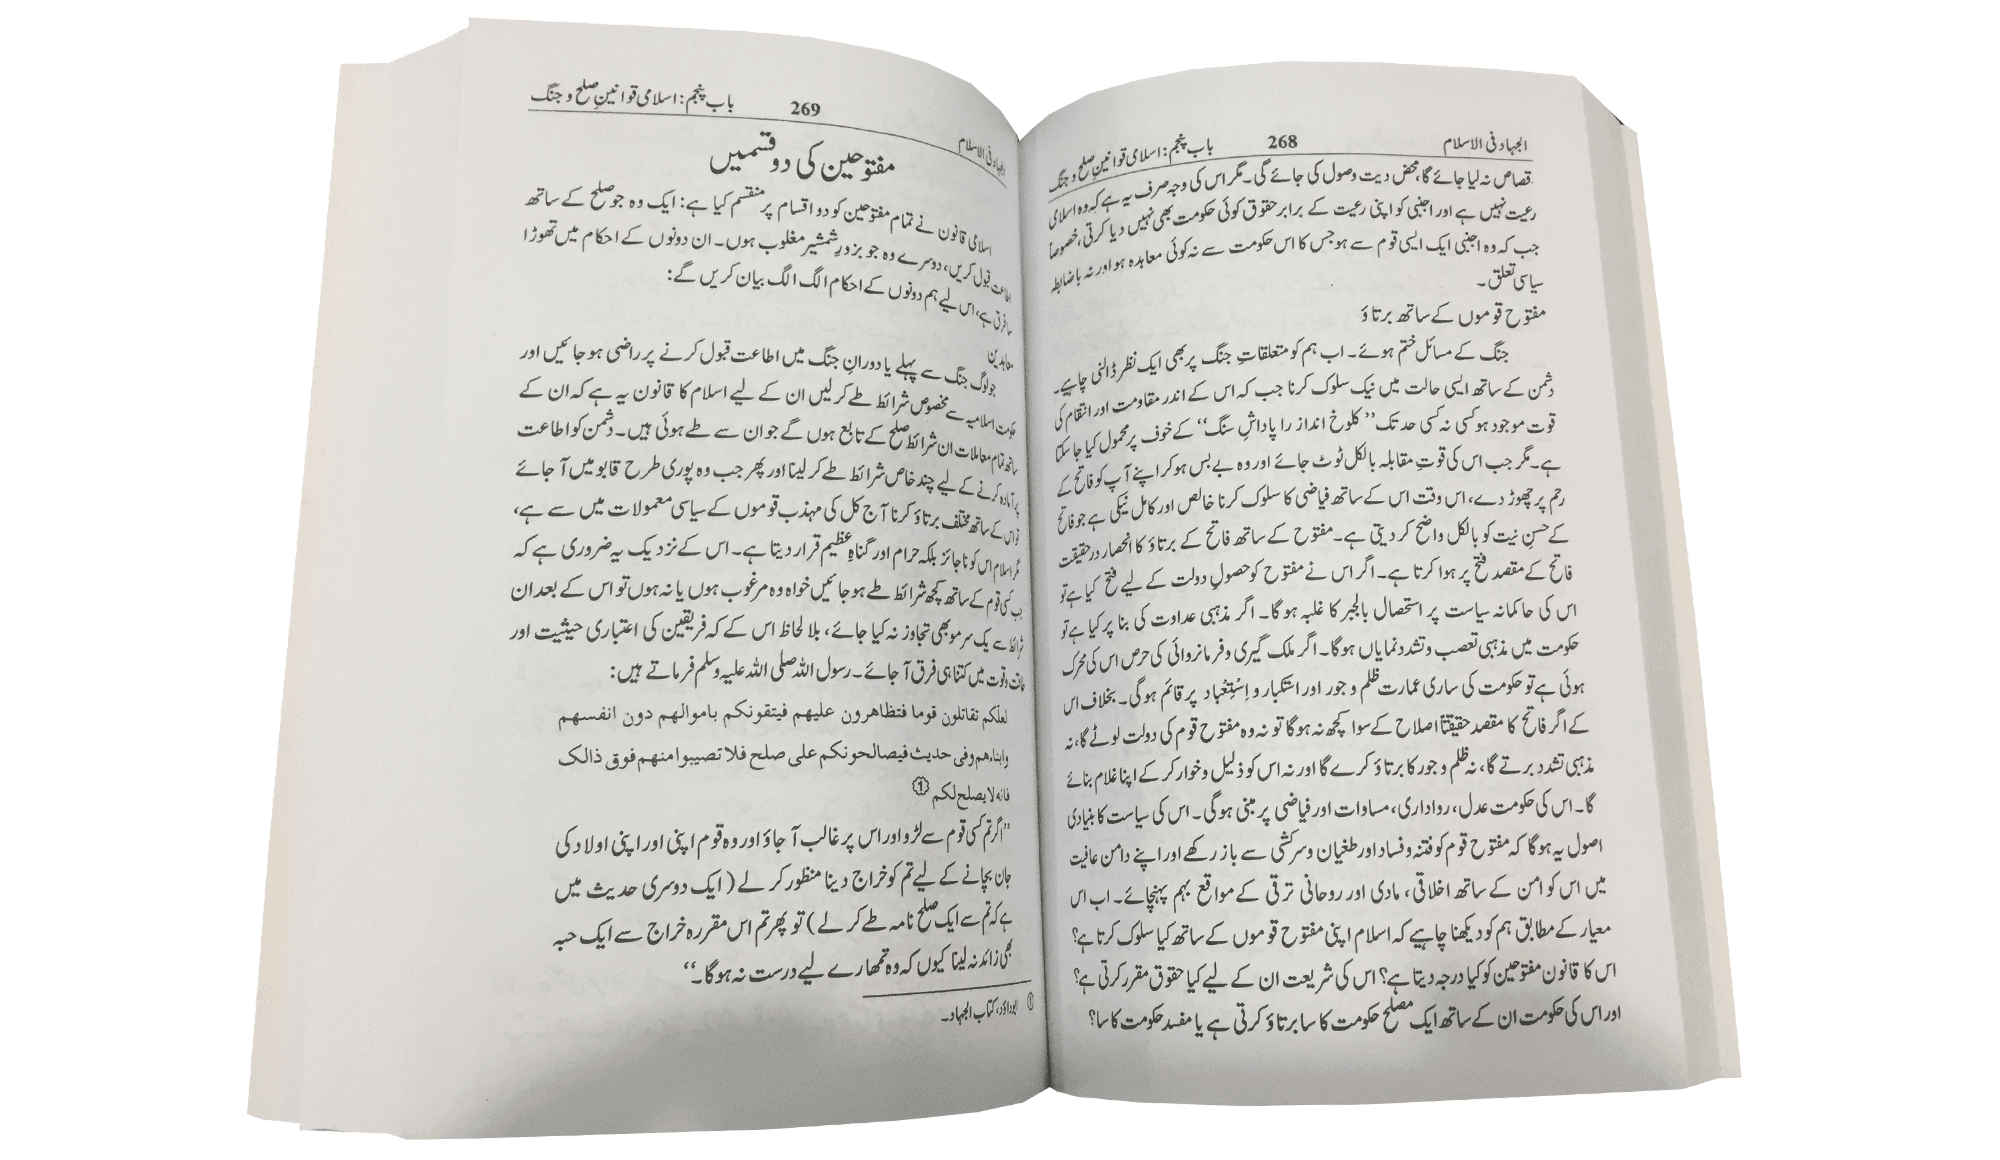 الجہاد فی الاسلام 268 باب پنجم: اسلامی قوانینِ صلح و جنگ
قصاص نہ لیا جائے گا، محض دیت وصول کی جائے گی۔ مگر اس کی وجہ صرف یہ ہے کہ وہ اسلامی
رعیت نہیں ہے اور اجنبی کو اپنی رعیت کے برابر حقوق کوئی حکومت بھی نہیں دیا کرتی، خصوصاً
جب کہ وہ اجنبی ایک ایسی قوم سے ہو جس کا اس حکومت سے نہ کوئی معاہدہ ہو اور نہ باضابطہ
سیاسی تعلق۔
مفتوح قوموں کے ساتھ برتاؤ
جنگ کے مسائل ختم ہوئے۔ اب ہم کو متعلقاتِ جنگ پر بھی ایک نظر ڈالنی چاہیے۔
دشمن کے ساتھ ایسی حالت میں نیک سلوک کرنا جب کہ اس کے اندر مقاومت اور انتقام کی
قوت موجود ہو کسی نہ کسی حد تک ’’کلوخ انداز را پاداشِ سنگ‘‘ کے خوف پر محمول کیا جا سکتا
ہے۔ مگر جب اس کی قوتِ مقابلہ بالکل ٹوٹ جائے اور وہ بے بس ہو کر اپنے آپ کو فاتح کے
رحم پر چھوڑ دے، اس وقت اس کے ساتھ فیاضی کا سلوک کرنا خالص اور کامل نیکی ہے جو فاتح
کے حسنِ نیت کو بالکل واضح کر دیتی ہے۔ مفتوح کے ساتھ فاتح کے برتاؤ کا انحصار درحقیقت
فاتح کے مقصدِ فتح پر ہوا کرتا ہے۔ اگر اس نے مفتوح کو حصولِ دولت کے لیے فتح کیا ہے تو
اس کی حاکمانہ سیاست پر استحصال بالجبر کا غلبہ ہوگا۔ اگر مذہبی عداوت کی بنا پر کیا ہے تو
حکومت میں مذہبی تعصب و تشدد نمایاں ہوگا۔ اگر ملک گیری و فرمانروائی کی حرص اس کی محرک
ہوئی ہے تو حکومت کی ساری عمارت ظلم و جور اور استکبار و اِسْتِعْباد پر قائم ہوگی۔ بخلاف اس
کے اگر فاتح کا مقصد حقیقتاً اصلاح کے سوا کچھ نہ ہوگا تو نہ وہ مفتوح قوم کی دولت لوٹے گا، نہ
مذہبی تشدد برتے گا، نہ ظلم و جور کا برتاؤ کرے گا اور نہ اس کو ذلیل و خوار کر کے اپنا غلام بنائے
گا۔ اس کی حکومت عدل، رواداری، مساوات اور فیاضی پر مبنی ہوگی۔ اس کی سیاست کا بنیادی
اصول یہ ہوگا کہ مفتوح قوم کو فتنہ و فساد اور طغیان و سرکشی سے باز رکھے اور اپنے دامن عافیت
میں اس کو امن کے ساتھ اخلاقی، مادی اور روحانی ترقی کے مواقع بہم پہنچائے۔ اب اس
معیار کے مطابق ہم کو دیکھنا چاہیے کہ اسلام اپنی مفتوح قوموں کے ساتھ کیا سلوک کرتا ہے؟
اس کا قانون مفتوحین کو کیا درجہ دیتا ہے؟ اس کی شریعت ان کے لیے کیا حقوق مقرر کرتی ہے؟
اور اس کی حکومت ان کے ساتھ ایک مصلح حکومت کا سا برتاؤ کرتی ہے یا مفسد حکومت کا سا؟
الجہاد فی الاسلام 269 باب پنجم: اسلامی قوانینِ صلح و جنگ
مفتوحین کی دو قسمیں
اسلامی قانون نے تمام مفتوحین کو دو اقسام پر منقسم کیا ہے: ایک وہ جو صلح کے ساتھ
اطاعت قبول کریں، دوسرے وہ جو بزورِ شمشیر مغلوب ہوں۔ ان دونوں کے احکام میں تھوڑا
سا فرق ہے، اس لیے ہم دونوں کے احکام الگ الگ بیان کریں گے:
معاہدین
جو لوگ جنگ سے پہلے یا دورانِ جنگ میں اطاعت قبول کرنے پر راضی ہو جائیں اور
حکومت اسلامیہ سے مخصوص شرائط طے کر لیں ان کے لیے اسلام کا قانون یہ ہے کہ ان کے
ساتھ تمام معاملات ان شرائط صلح کے تابع ہوں گے جو ان سے طے ہوئی ہیں۔ دشمن کو اطاعت
پر آمادہ کرنے کے لیے چند خاص شرائط طے کر لینا اور پھر جب وہ پوری طرح قابو میں آ جائے
تو اس کے ساتھ مختلف برتاؤ کرنا آج کل کی مہذب قوموں کے سیاسی معمولات میں سے ہے،
مگر اسلام اس کو ناجائز بلکہ حرام اور گناہِ عظیم قرار دیتا ہے۔ اس کے نزدیک یہ ضروری ہے کہ
جب کسی قوم کے ساتھ کچھ شرائط طے ہو جائیں خواہ وہ مرغوب ہوں یا نہ ہوں تو اس کے بعد ان
شرائط سے یک سرمو بھی تجاوز نہ کیا جائے، بلالحاظ اس کے کہ فریقین کی اعتباری حیثیت اور
طاقت و قوت میں کتنا ہی فرق آ جائے۔ رسول اللہ صلی اللہ علیہ وسلم فرماتے ہیں:
لعلکم تقاتلون قوما فتظاهرون علیهم فیتقونکم باموالهم دون انفسهم
وابناءهم وفی حدیث فیصالحونکم علی صلح فلا تصیبوا منهم فوق ذالک
فانه لا یصلح لکم ①
’’اگر تم کسی قوم سے لڑو اور اس پر غالب آ جاؤ اور وہ قوم اپنی اور اپنی اولاد کی
جان بچانے کے لیے تم کو خراج دینا منظور کر لے (ایک دوسری حدیث میں
ہے کہ تم سے ایک صلح نامہ طے کر لے) تو پھر تم اس مقررہ خراج سے ایک حبہ
بھی زائد نہ لینا کیوں کہ وہ تمھارے لیے درست نہ ہوگا۔‘‘
① ابوداؤد، کتاب الجہاد۔